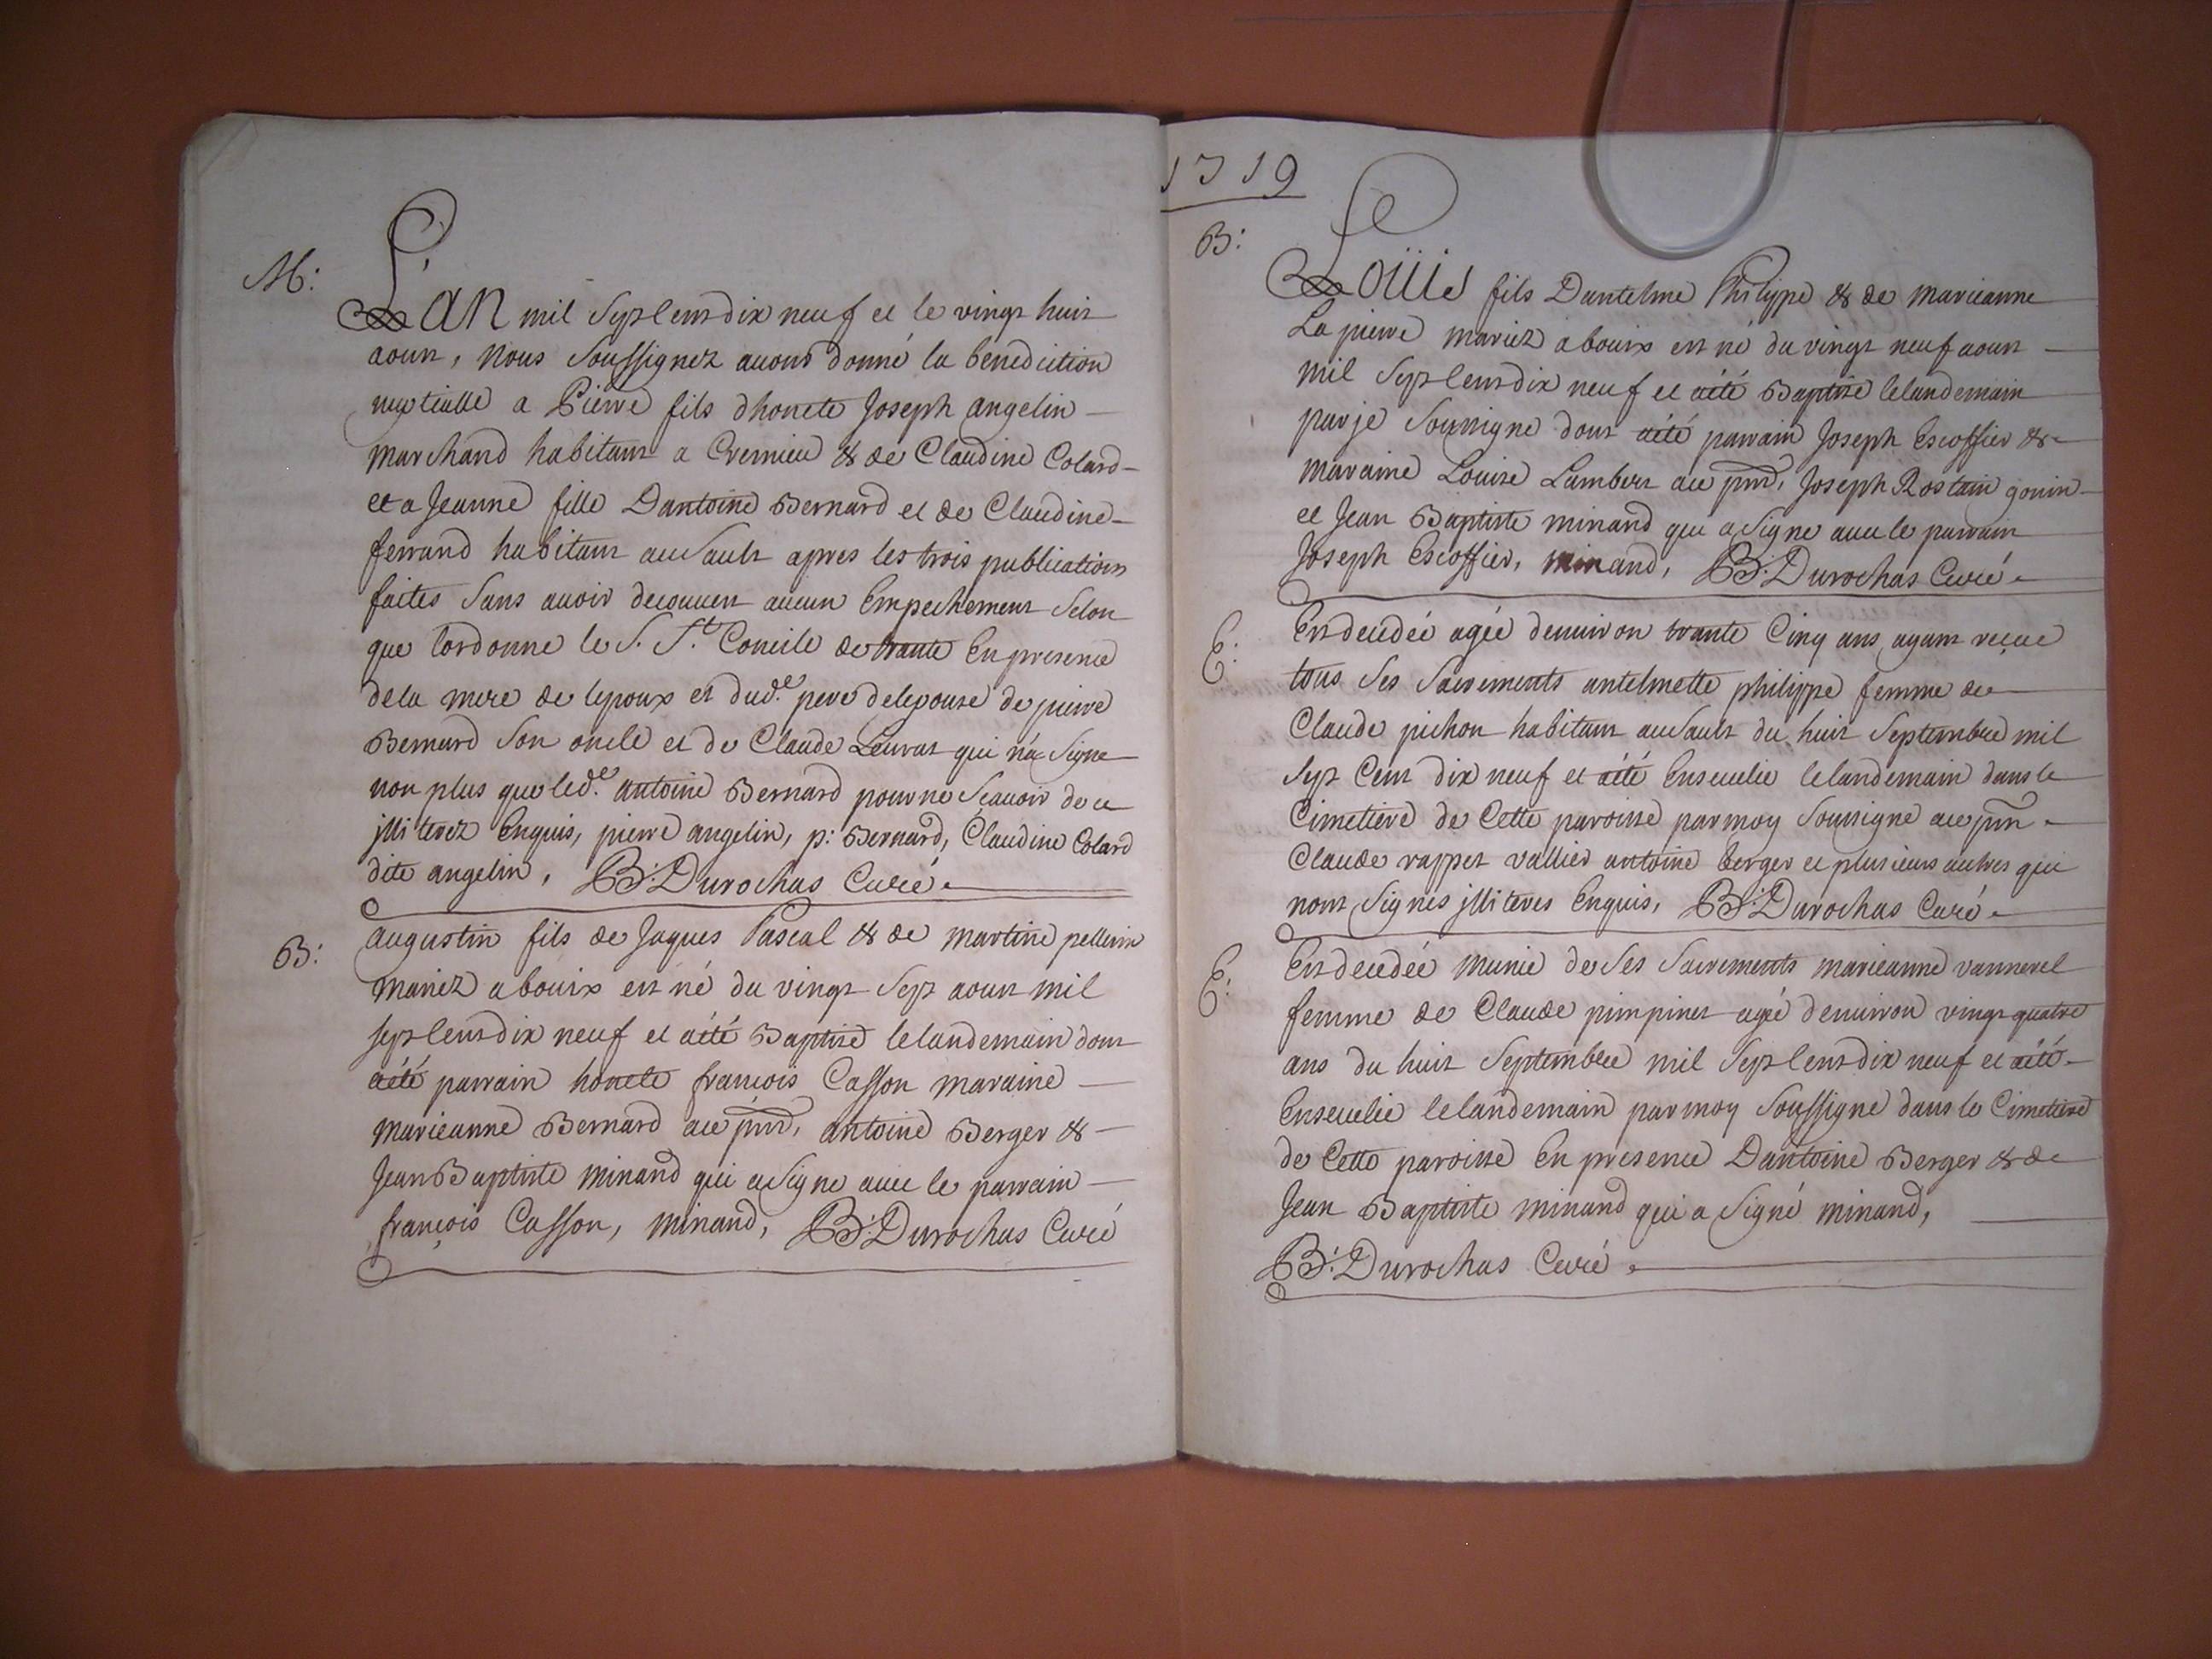 M:
L'an mil Sept Cent dix neuf et le vingt huit
aoust, Nous Soussignez auons donné la benediction
nuptialle a Pierre fils dhonete Joseph angelin
marchand habitant a Cremieu & de Claudine Colard
et a Jeanne fille Dantoine Bernard et de Claudine
ferrand habitant au Sault apres les trois publications
faites Sans auoir decouuert aucun Empechement Selon
que lordonne le S. St. Concile de trante En presence
de la mere de lepoux et dud.e pere delepouse de pierre
Bernard Son oncle et de Claude Leurat qui na Signe
non plus que led.e antoine Bernard pour ne Sçauoir de ce
jlliterez Enquis, pierre angelin, p: Bernard, Claudine Colard
dite angelin, B: Durochas Curé.
B:
augustin fils de Jaques Pascal & de martine pellerin
mariez a bouix est né du vingt Sept aoust mil
sept Cent dix neuf et aété Baptisé lelandemain dont
aété parrain honete françois Casson maraine
marieanne Bernard ace pnt, antoine Berger &
Jean Baptiste minand qui a Signe auec le parrain
françois Casson, minand, B: Durochas Curé
1719
B:
Loüis fils Dantelme Philippe & de marieanne
La pierre mariez a bouix est né du vingt neuf aoust
mil Sept Cent dix neuf et aété Baptisé lelandemain
par je Soussigne dont aété parrain Joseph Escoffier &
maraine Louise Lambert ace pnt, Joseph Rostain gonin
et Jean Baptiste minand qui a Signe auec le parrain
Joseph Escoffier, minand, B: Durochas Curé.
E:
Est decedée agée denuiron trante Cinq ans ayant reçue
tous Ses Sacrements antelmette philippe femme de
Claude pichon habitant au Sault du huit Septembre mil
Sept Cent dix neuf et aété Enseuelie lelandemain dans le
Cimetiere de Cette paroisse par moy Soussigne ace pnt
Claude rappet vallier antoine berger et plusieurs autres qui
nont Signes jlliteres Enquis, B: Durochas Curé.
E:
Est decedée munie de Ses Sacrements marieanne vannerel
femme de Claude pimpinet agée denuiron vingt quatre
ans du huit Septembre mil Sept Cent dix neuf et aété
Enseuelie lelandemain par moy Soussigne dans le Cimetiere
de Cette paroisse En presence Dantoine Berger & de
Jean Baptiste minand qui a Signé minand,
B: Durochas Curé.